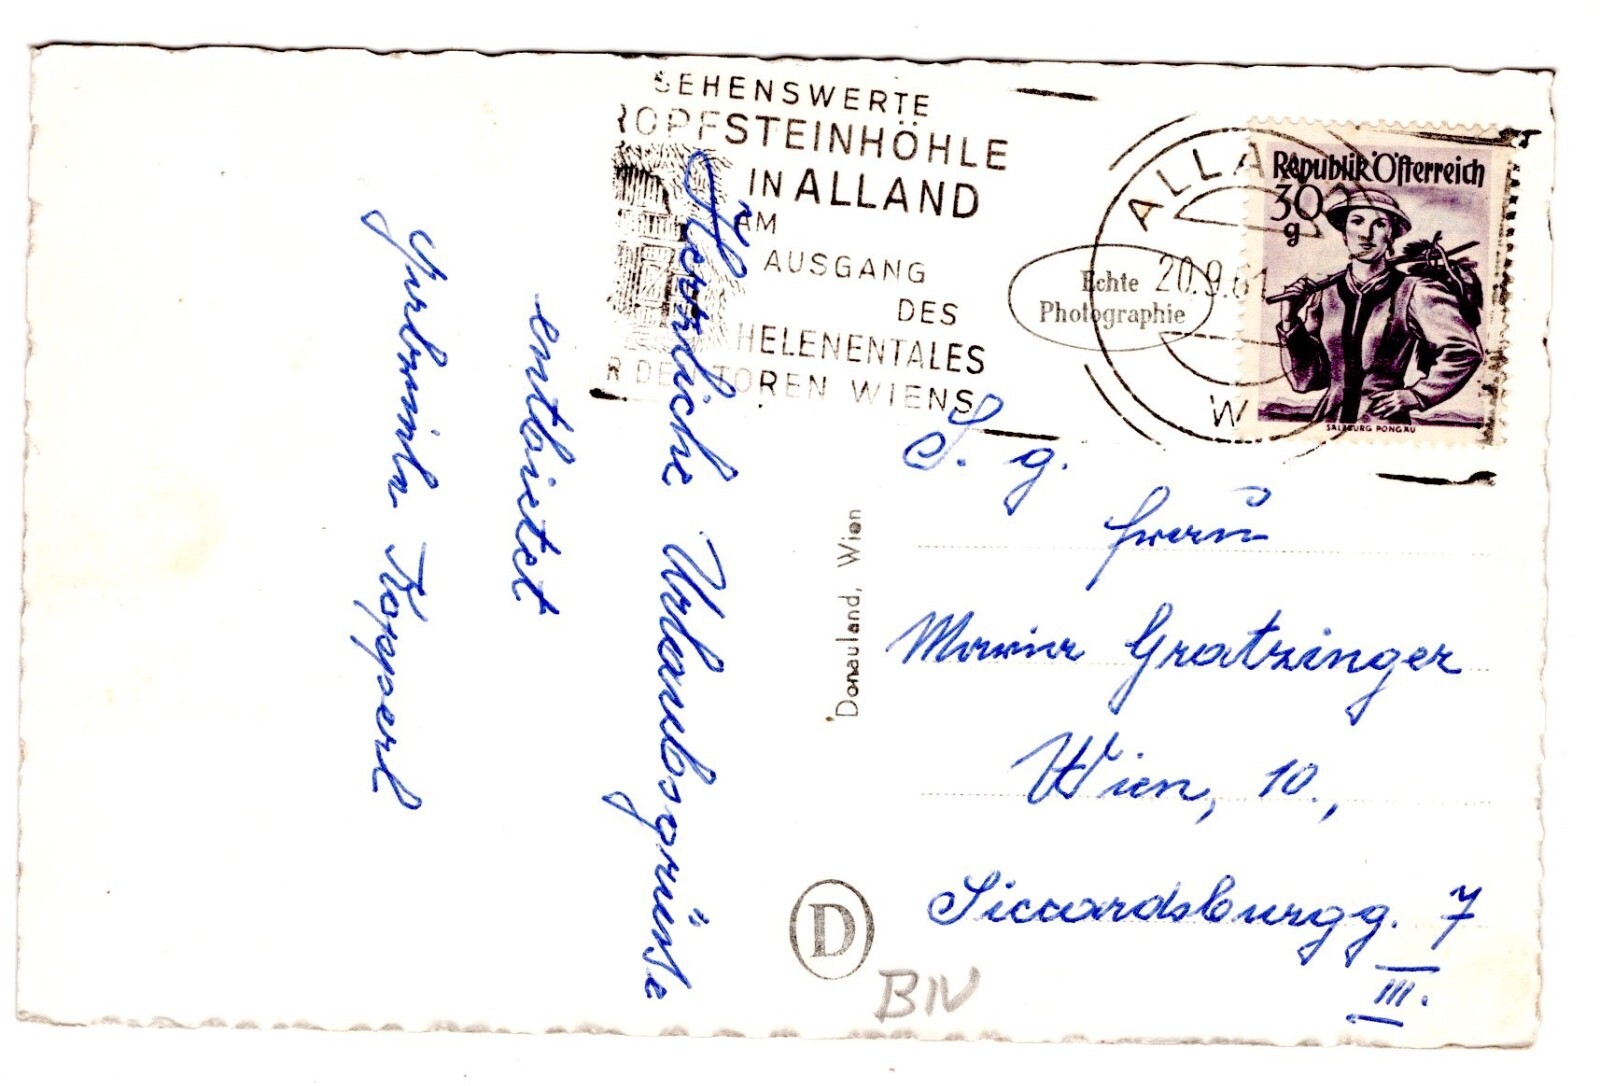 SEHENSWERTE
ROPFSTEINHÖHLE
IN ALLAND
AM
AUSGANG
DES
HELENENTALES
R DEN TOREN WIENS
ALLA
20.9.61
W
Republik Österreich
30
g
SALZBURG PONGAU
Echte
Photographie
Herrliche Urlaubsgrüsse
entbietet
Köpperl
Donauland, Wien
S. g.
Frau
Maria Gratzinger
Wien, 10.,
Siccardsburgg. 7
III.
D
BIV